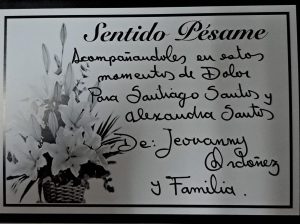 Sentido Pésame
Acompañandoles en estos
momentos de Dolor
Para Santiago Santos y
Alexandra Santos
De: Jeovanny
Ordoñez
y Familia.